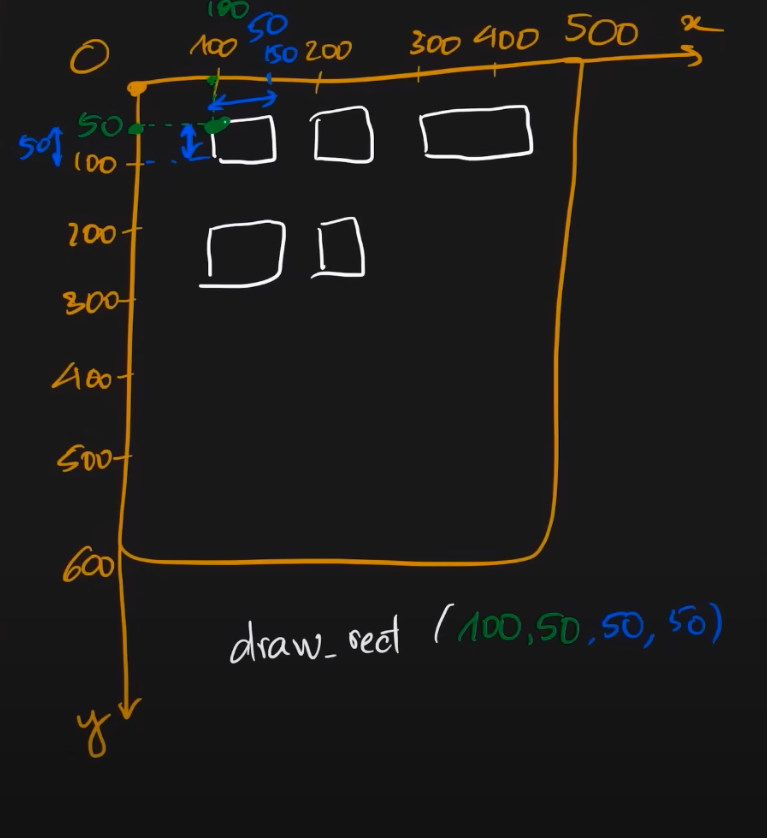 100
50
0 100 150 200 300 400 500 x
50
50
100
200
300
400
500
600
draw_rect (100,50,50,50)
y